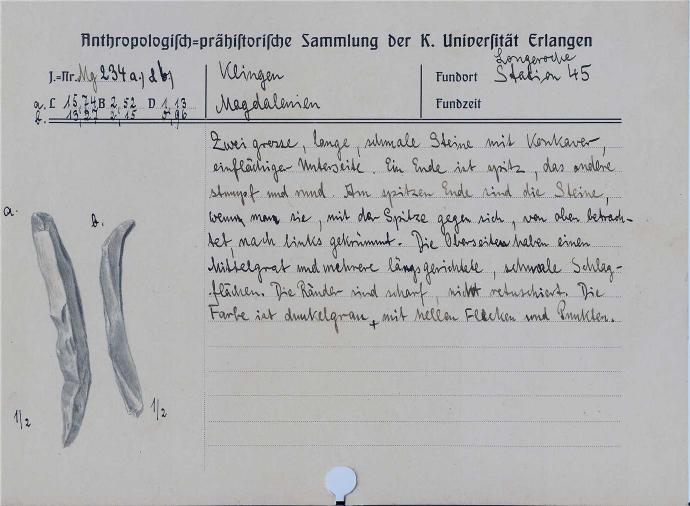 Anthropologisch=prähistorische Sammlung der K. Universität Erlangen
J.=Nr. Mg 234 a) d b)
Klingen
Fundort Longeroche
Station 45
a. L 15,74 B 2,52 D 1,13
b. 13,27 2,15 0,96
Magdalenien
Fundzeit
Zwei grosse, lange, schmale Steine mit konkaver,
einflächiger Unterseite. Ein Ende ist spitz, das andere
stumpf und rund. Am spitzen Ende sind die Steine,
wenn man sie, mit der Spitze gegen sich, von oben betrach-
tet, nach links gekrümmt. Die Oberseiten haben einen
Mittelgrat und mehrere längsgerichtete, schmale Schlag-
flächen. Die Ränder sind scharf, nicht retuschiert. Die
Farbe ist dunkelgrau, mit hellen Flecken und Punkten.
a.
b.
1/2
1/2